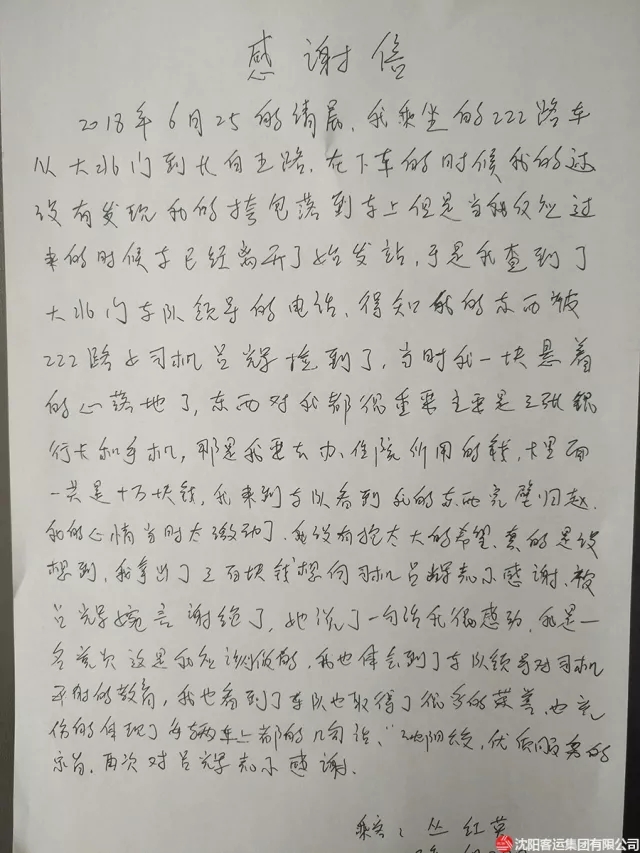 感谢信
2018年6月25的清晨，我乘坐的222路车
从大北门到长白五路，在下车的时候我的过
没有发现我的挎包落到车上但是当我反应过
来的时候车已经离开了始发站，于是我查到了
大北门车队领导的电话，得知我的东西被
222路女司机吕辉捡到了，当时我一块悬着
的心落地了，东西对我都很重要主要是三张银
行卡和手机，那是我要去办住院所用的钱，卡里面
一共是十万块钱，我来到车队看到我的东西完璧归赵，
我的心情当时太激动了，我没有抱太大的希望，真的是没
想到，我拿出了三百块钱想向司机吕辉表示感谢，被
吕辉婉言谢绝了，她说了一句话我很感动，我是一
名党员这是我应该做的，我也体会到了车队领导对司机
平时的教育，我也看到了车队也取得了很多的荣誉，也充
份的体现了每辆车上都的几句话，“沈阳客运，优质服务的
宗旨，再次对吕辉表示感谢．
乘客：丛红英
沈阳客运集团有限公司